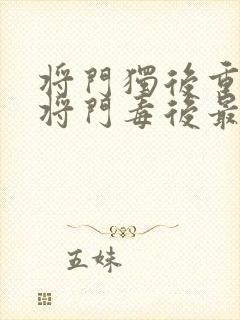 将門獨後重
将門毒後最
五妹